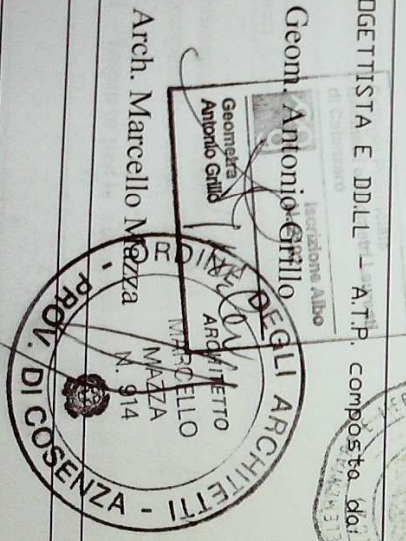 OGETTISTA E DD.LL - A.T.P. composta da:
Geom. Antonio Grillo
Iscrizione Albo
Geometra
Antonio Grillo
Arch. Marcello Mazza
ORDINE DEGLI ARCHITETTI
- PROV. DI COSENZA -
ARCHITETTO
MARCELLO
MAZZA
N. 914